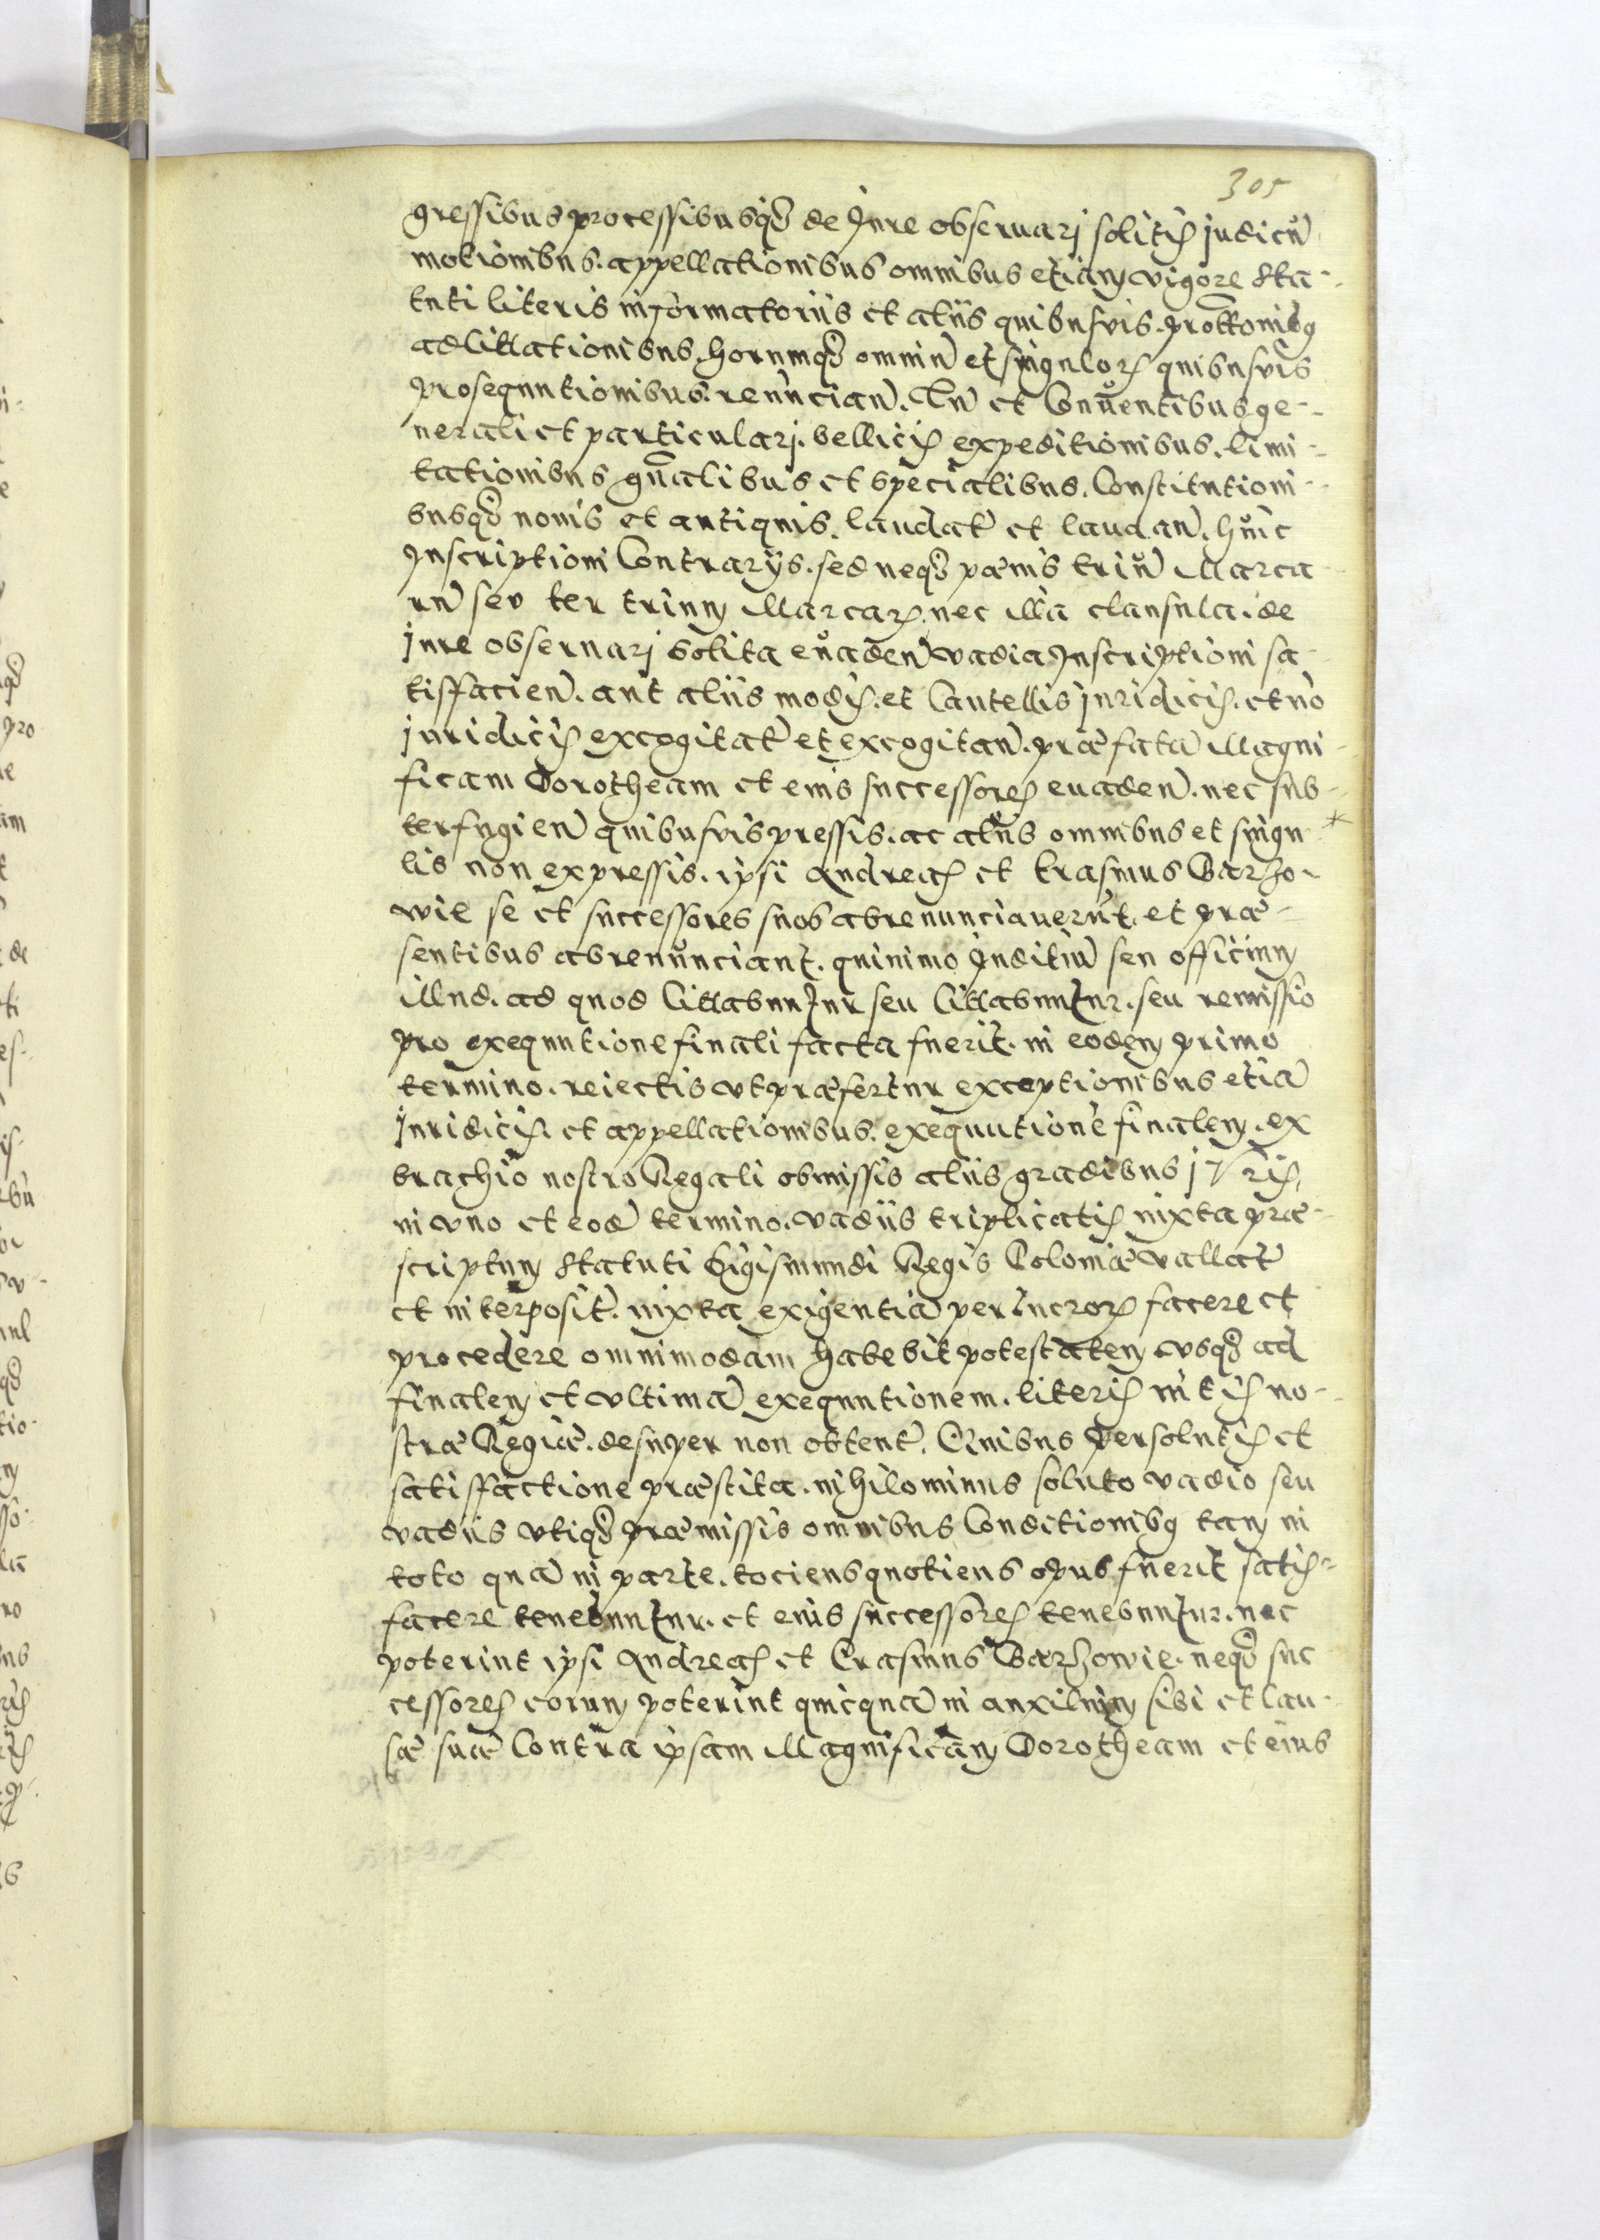 305
gressibus processibusq̃ de Jure obseruarj solitis judicũ
motionibus. appellationibus omnibus etiam vigore sta-
tuti literis informatoriis et aliis quibusuis. prott̃onibq
adcittationibus. horumq̃ omniũ et singulorꝫ quibusuis
prosequutionibus. renuncianͫ. Tũ et Conuentibus ge-
nerali et particularj. bellicis expeditionibus. limi-
tationibus gnãlibus et specialibus. Constitutioni-
busq̃ nouis et antiquis. laudat̃ et laudañ. huic
Inscriptioni Contrarÿs. sed neq̃ pænis triũ Marca-
rũ seu ter trium Marcarꝫ. nec illa clausula. de
jure obseruarj solita euadeñ vadia Inscriptioni sa-
tisfacieñ. aut aliis modis. et Cautellis juridicis. et nõ
juridicis excogitat̃ et excogitañ. præfatã Magni-
ficam Dorotheam et eius successores euadeñ. nec sub-
terfugieñ quibusuis pressis. ac aliis omnibus et singu-
lis non expressis. ipsi Andreas et Erasmus Barzo-
wie se et successores suos abrenunciauerũt. et præ-
sentibus abrenunciant. quinimo Juditiũ seu officium
illud. ad quod cittabuntur seu cittabuntur. seu remissio
pro exequutione finali facta fuerit. in eodem primo
termino. reiectis vt præfertur exceptionibus etiã
juridicis et appellationibus. exequutionẽ finalem. ex
brachio nostro Regali obmissis aliis gradibus juris,
in vno et eodẽ termino. vadiis triplicatis iuxta præ-
scriptum statuti Sigismundi Regis Poloniæ vallat̃
et interposit̃. iuxta exigentiã perlucrorꝫ facere et
procedere omnimodam habebit potestatem vsq̃ ad
finalem et vltimã exequutionem. literis mtis no-
stræ Regiæ. desuper non obtent̃. Quibus persolutis et
satisfactione præstita. nihilominus soluto vadio seu
vadiis vtiq̃ præmissis omnibus Conditionibq tam in
toto quã in parte. tociens quotiens opus fuerit satis-
facere tenebuntur. et eius successores tenebuntur. nec
poterint ipsi Andreas et Erasmus Barzowie. neq̃ suc
cessores eorum poterint quicquã in auxilium sibi et Cau-
sæ suæ Contra ipsam Magnificam Dorotheam et eius